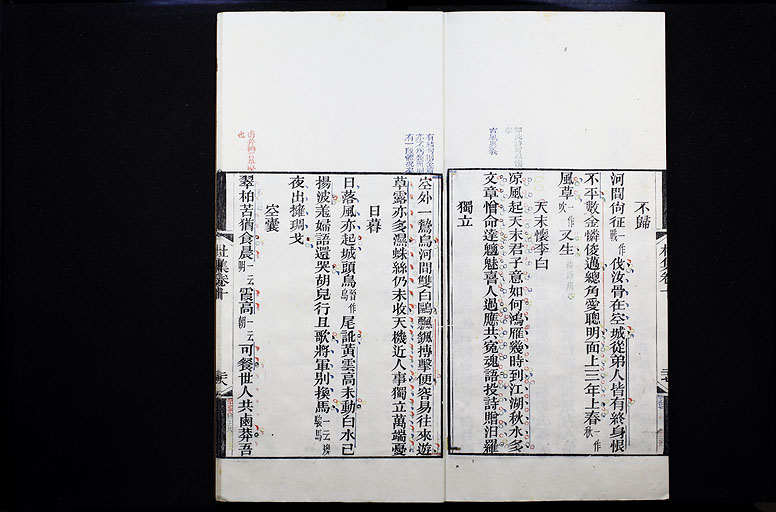 不歸
河間尚征一作戰伐汝骨在空城從弟人皆有終身恨
不平數金憐俊邁總角愛聰明面上三年土春一作秋
風草一作吹又生
天末懷李白
涼風起天末君子意如何鴻雁幾時到江湖秋水多
文章憎命達魑魅喜人過應共冤魂語投詩贈汨羅
獨立
空外一鷙鳥河間雙白鷗飄飖搏擊便容易往來遊
草露亦多濕蛛絲仍未收天機近人事獨立萬端憂
日暮
日落風亦起城頭烏尾訛黃雲高未動白水已
揚波羗婦語還哭胡兒行且歌將軍別換馬
夜出擁琱戈
空囊
翠柏苦猶食晨一云明霞高一云朝可餐世人共鹵莽吾
杜集卷十